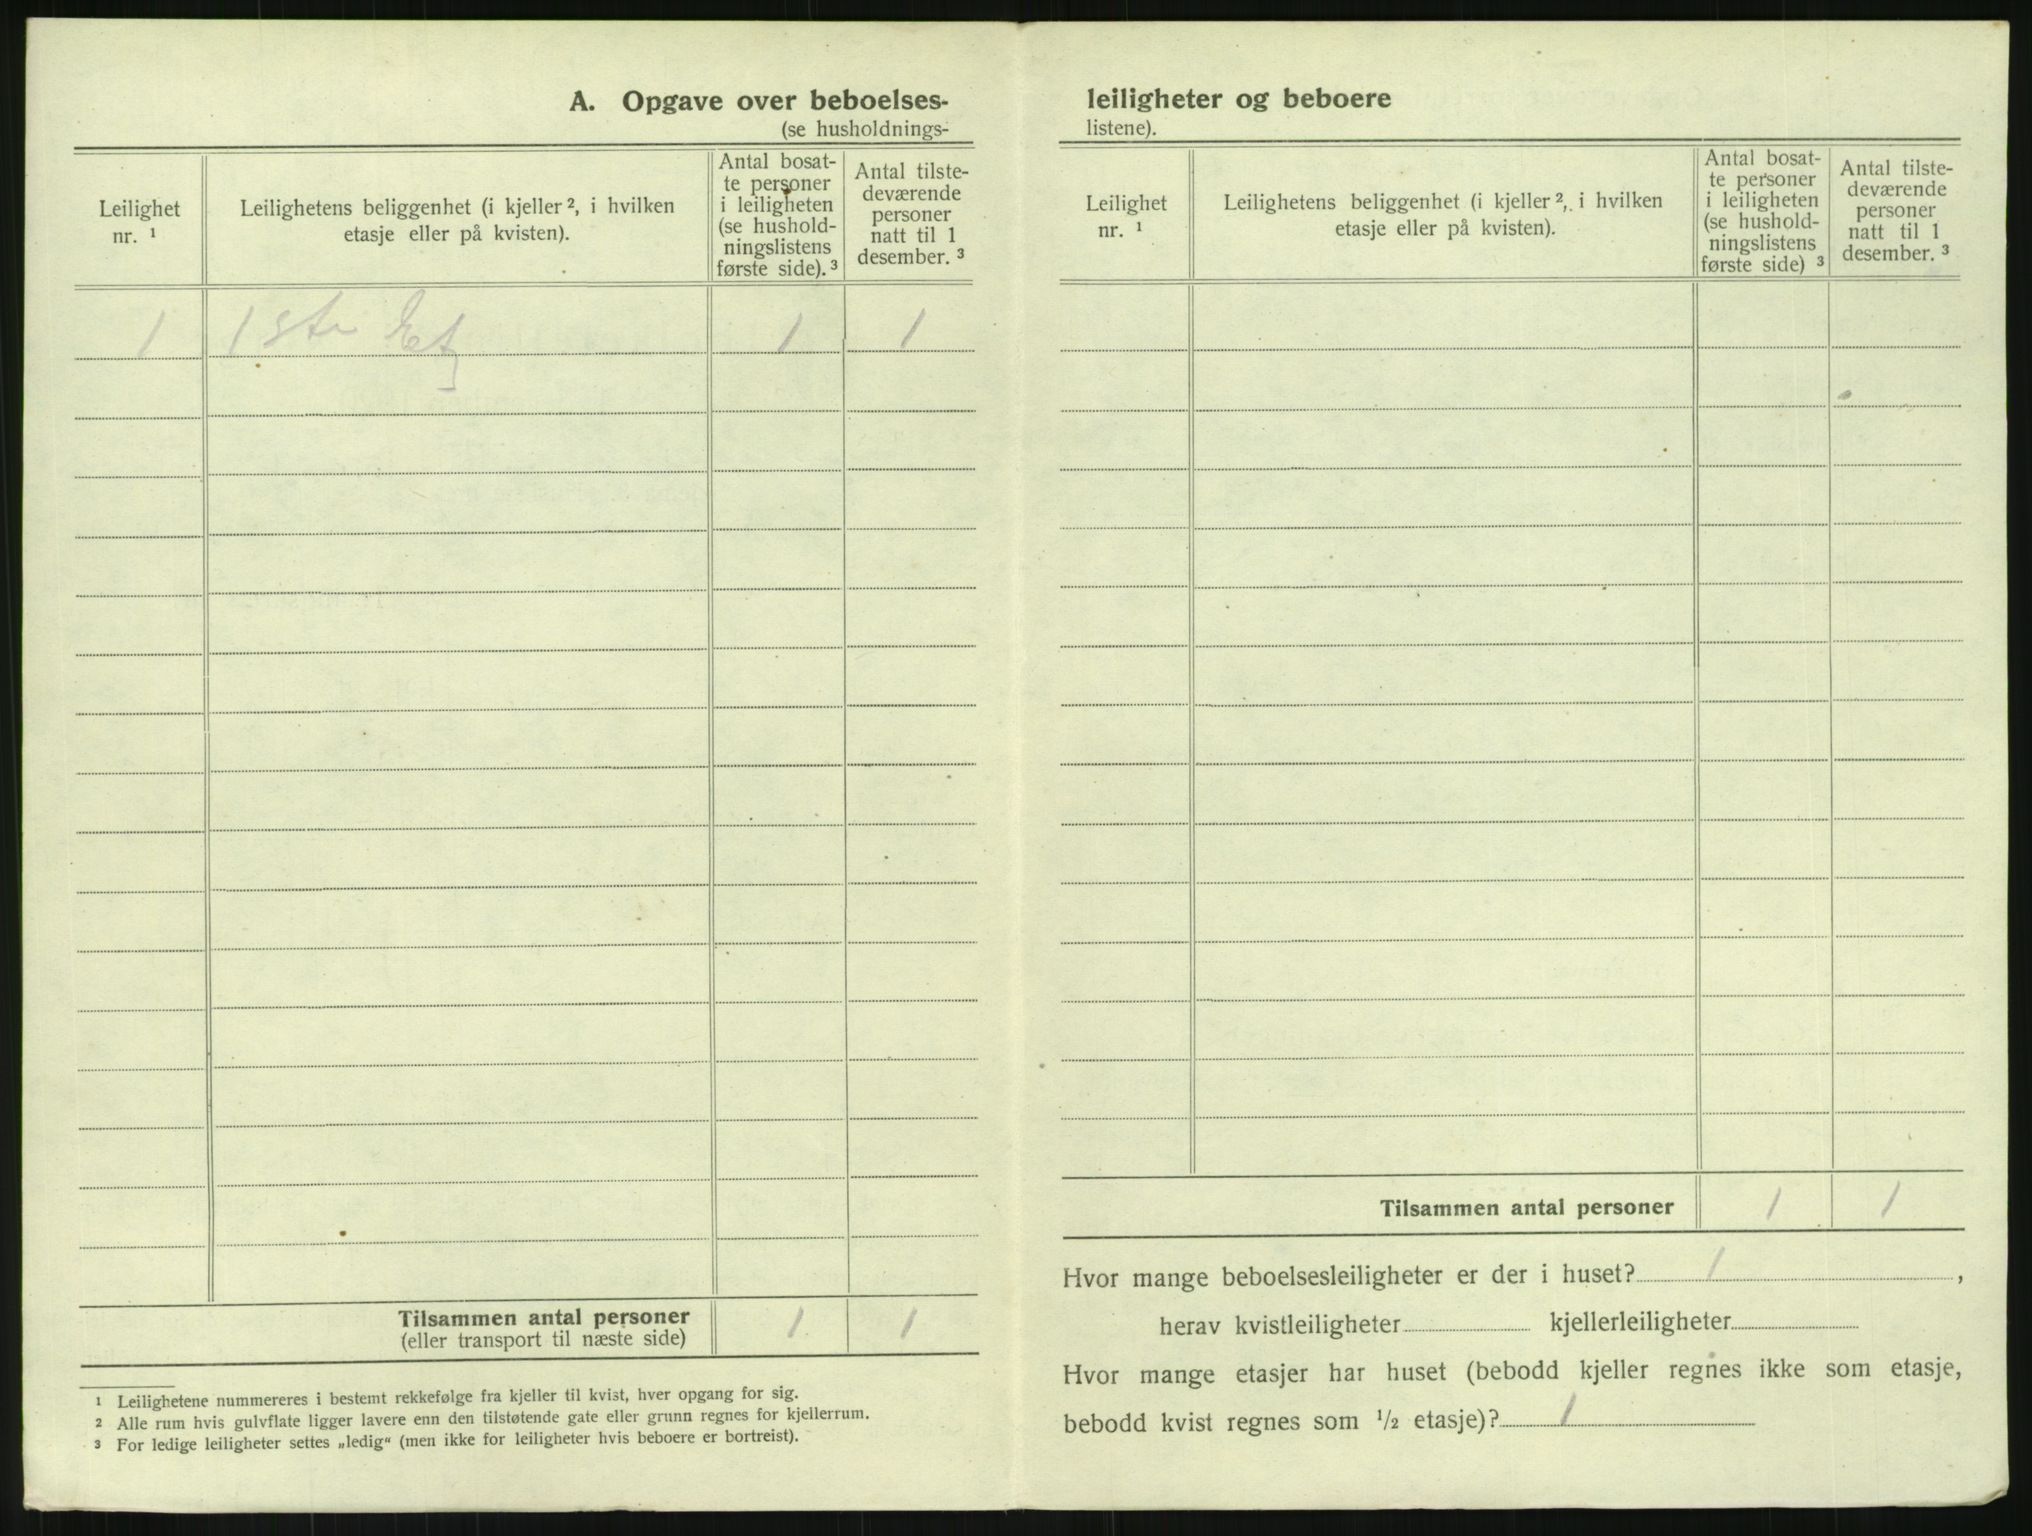 A. Opgave over beboelses-
(se husholdnings-
Leilighet
nr. ¹
Leilighetens beliggenhet (i kjeller ², i hvilken
etasje eller på kvisten).
Antal bosat-
te personer
i leiligheten
(se hushold-
ningslistens
første side). ³
Antal tilste-
deværende
personer
natt til 1
desember. ³
1 1ste Etg 1 1
Tilsammen antal personer 1 1
(eller transport til næste side)
¹ Leilighetene nummereres i bestemt rekkefølge fra kjeller til kvist, hver opgang for sig.
² Alle rum hvis gulvflate ligger lavere enn den tilstøtende gate eller grunn regnes for kjellerrum.
³ For ledige leiligheter settes „ledig“ (men ikke for leiligheter hvis beboere er bortreist).
leiligheter og beboere
listene).
Leilighet
nr. ¹
Leilighetens beliggenhet (i kjeller ², i hvilken
etasje eller på kvisten).
Antal bosat-
te personer
i leiligheten
(se hushold-
ningslistens
første side) ³
Antal tilste-
deværende
personer
natt til 1
desember. ³
Tilsammen antal personer 1 1
Hvor mange beboelsesleiligheter er der i huset? 1 ,
herav kvistleiligheter kjellerleiligheter
Hvor mange etasjer har huset (bebodd kjeller regnes ikke som etasje,
bebodd kvist regnes som ½ etasje)? 1